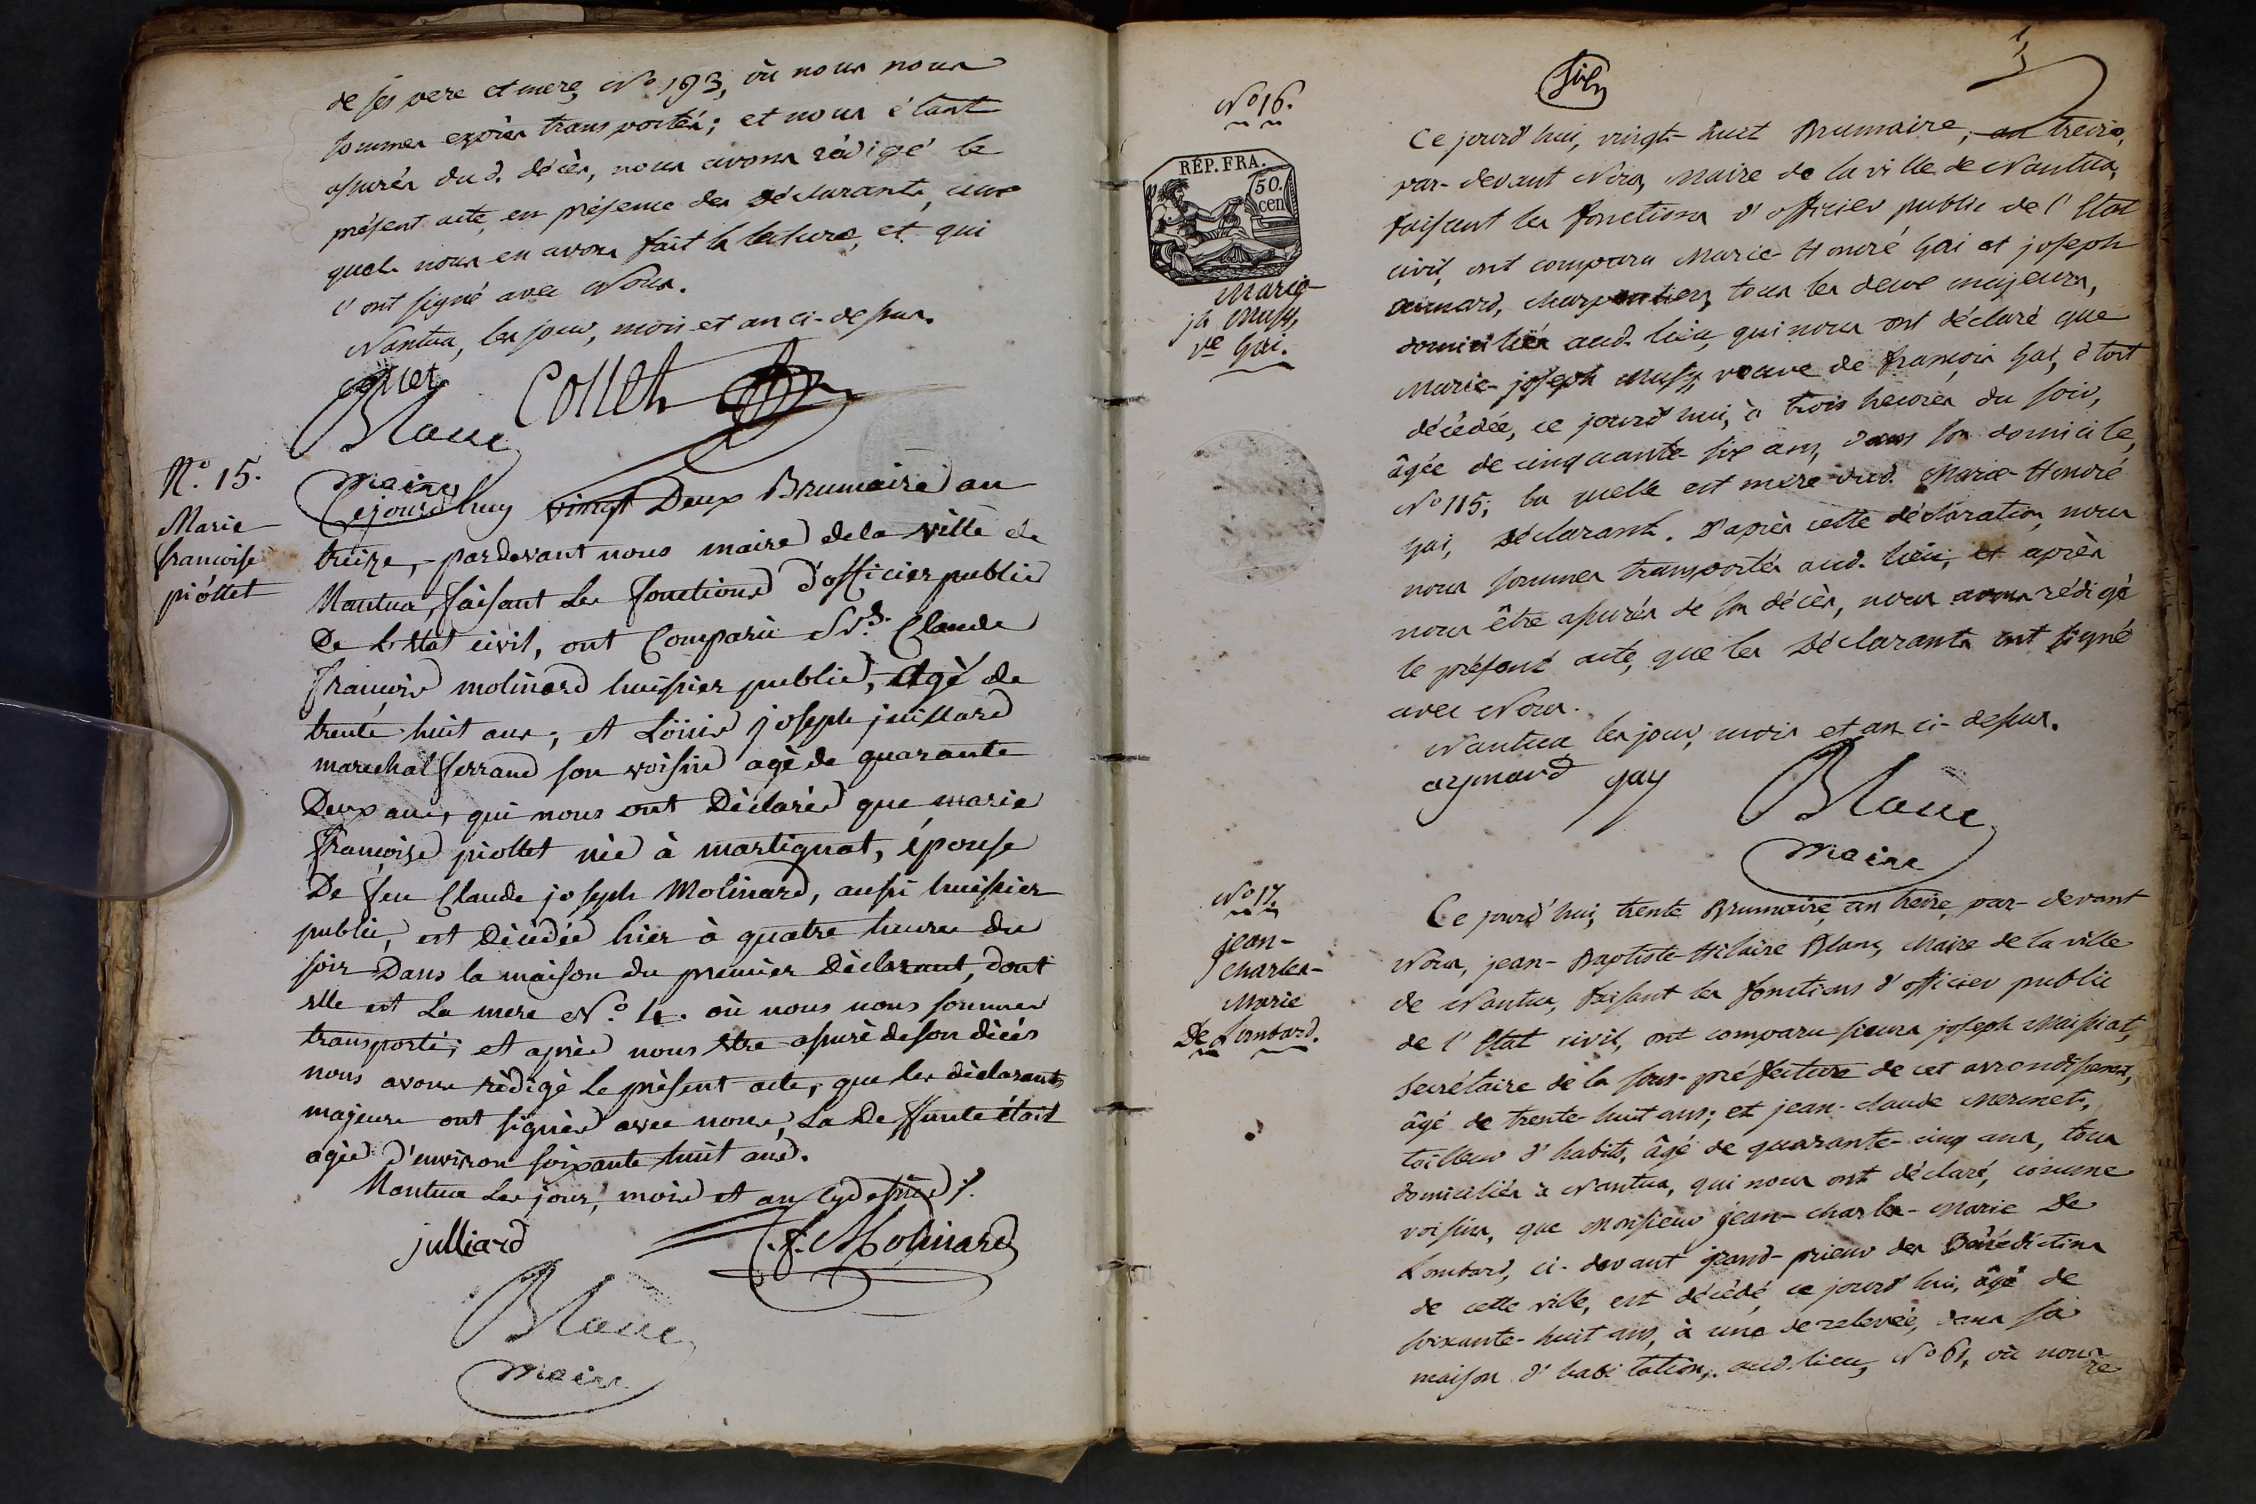 de ses pere et mere, No 193, où nous nous
sommes exprès transportés; et nous étant
assurés dud. décès, nous avons rédigé le
présent acte, en présence des Déclarants, aux
quels nous en avons fait la lecture, et qui
l'ont signé avec Nous.
Nantua, les jour, mois et an ci-dessus.
collet Collet
Blanc
maire
N.o 15.
Marie
francoise
piottet
Cejourdhuy vingt Deux Brumaire an
treize, pardevant nous maire dela ville de
Nantua, faisant les fonctions d'officier public
De L'Etat civil, ont Comparu Srs. Claude
François molinard huissier public, Agé de
trente huit ans, et Loüis joseph juillard
marechal ferrand son voisin agé de quarante
Deux ans, qui nous ont Déclarés que marie
Françoise piollet née à martignat, épouse
De feu Claude joseph Molinard, aussi huissier
public, est Décédée hier à quatre heures du
soir Dans la maison du premier Déclarant, dont
elle est La mere N.o 4. où nous nous sommes
transporté; et après nous être assuré deson décès
nous avons rédigé Le présent acte, que les déclarants
majeurs ont signés avec nous, La Deffunte était
agée d'environ soixante huit ans.
Nantua Les jour, mois et an cydessus
julliard C.f. Molinard
Blanc
maire
No 16.
RÉP. FRA.
50.
cen
Marie-
jh Mussy,
ve Gai.
Six
Ce jourd'hui, vingt-huit Brumaire, an treize,
par-devant Nous, Maire de la ville de Nantua,
faisant les fonctions d'officier public de l'Etat
civil, ont comparu Marie-Honoré Gai et joseph
aimard, charpentier, tous les deux majeurs,
domiciliés aud. lieu, qui nous ont déclaré que
Marie-joseph Mussy, veuve de françois Gai, étoit
décédée, ce jourd'hui, à trois heures du soir,
âgée de cinquante-six ans, dans son domicile,
No 115; la quelle est mère dud. Marie-Honoré
Gai, Déclarant. D'après cette déclaration, nous
nous sommes transportés aud. lieu; et après
nous être assurés de son décès, nous avons rédigé
le présent acte, que les Déclarants ont signé
avec Nous.
Nantua les jour, mois et an ci-dessus.
aymard gay Blanc
maire
No 17.
jean-
charles-
Marie
De Lombard.
Ce jourd'hui, trente Brumaire, an treize, par-devant
Nous, jean-Baptiste-Hilaire Blanc, Maire de la ville
de Nantua, faisant les fonctions d'officier public
de l'Etat civil, ont comparu sieurs joseph Maissiat,
Secrétaire de la sous-préfecture de cet arrondissement,
âgé de trente-huit ans; et jean-claude Mermet,
tailleur d'habits, âgé de quarante-cinq ans, tous
domiciliés à Nantua, qui nous ont déclaré, comme
voisins, que Monsieur jean-charles-Marie De
Lombard, ci-devant grand-prieur des Bénédictins
de cette ville, est décédé, ce jourd'hui, âgé de
soixante-huit ans, à une de relevée, dans sa
maison d'habitation, aud. lieu, No 61, où nous